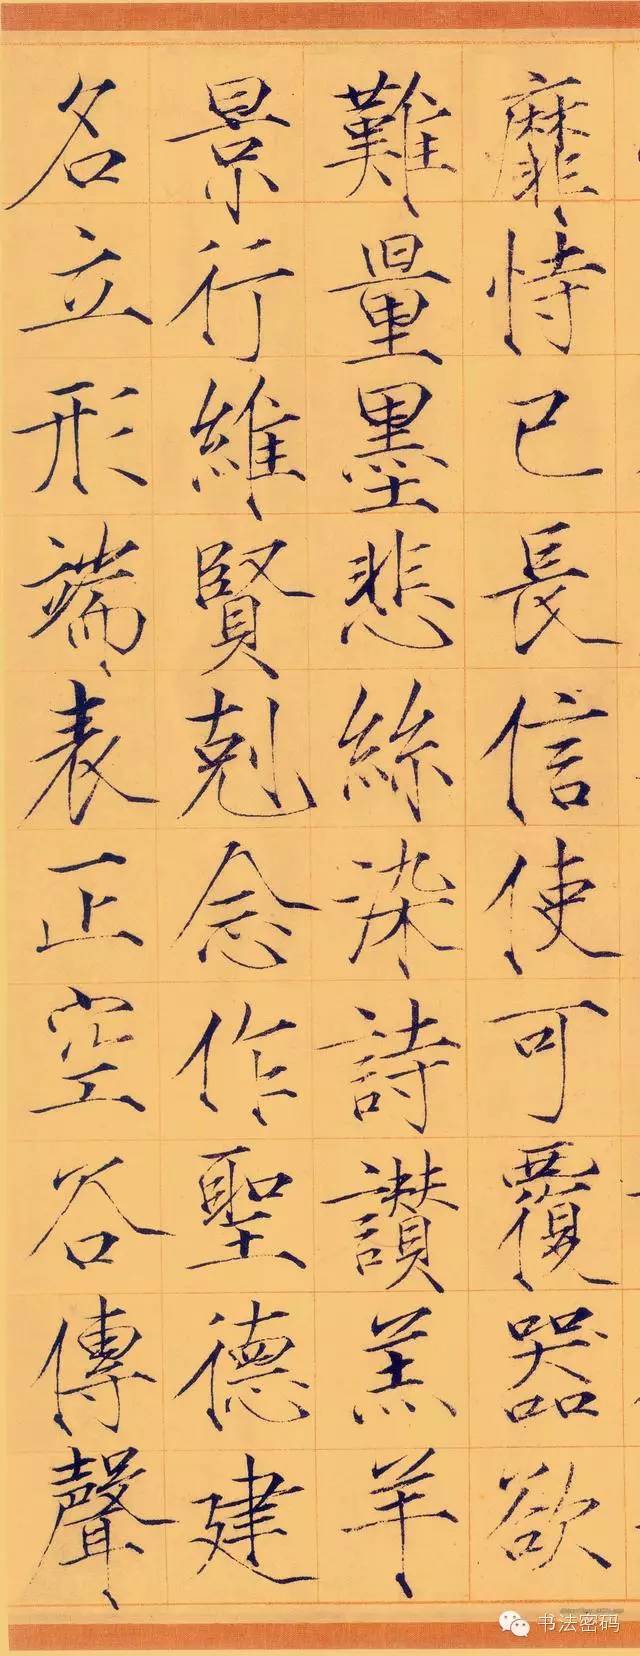 靡恃已長信使可覆器欲
難量墨悲絲染詩讃羔羊
景行維賢剋念作聖德建
名立形端表正空谷傳聲
书法密码